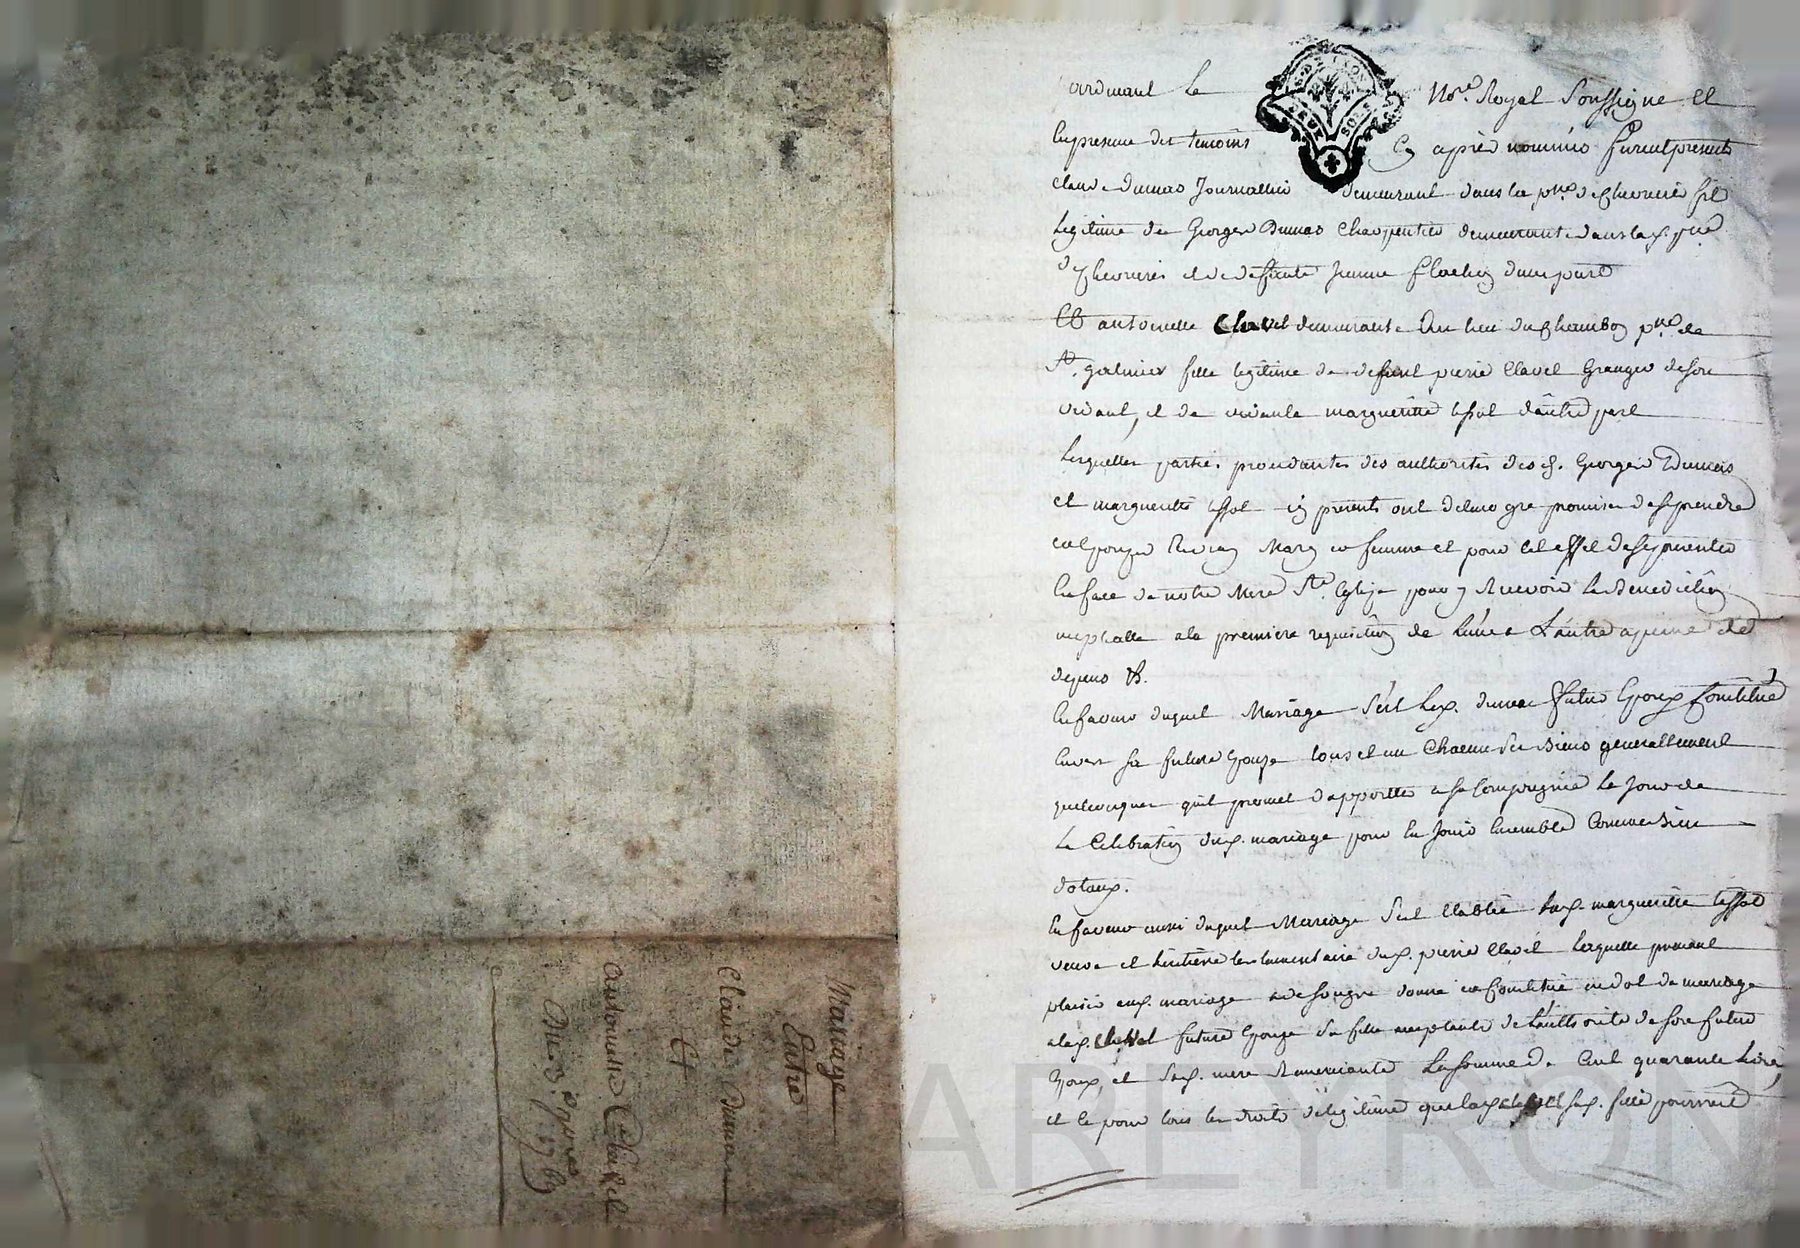 Mariage
Entre
Claude Dumas
Et
Antoinette Clavel
Du 3e 1769
Pardevant le Nore. Royal Soussigne Et
En presence des temoins Cy après nommés furent presents
Claude Dumas Journallier demeurant dans la pse. de Chevriere fils
Legitime de George Dumas Charpentier demeurant dans la pse
de Chevrieres et de defunte Jeanne flachy d'une part
Et antoinette Clavel demeurante Au lieu du Chambon pse. de
St. galmier fille legitime de defunt pierre Clavel Granger de son
vivant, et de vivante margueritte d'autre part
Lesquelles parties procedantes des authorités des d. George Dumas
et margueritte cy presents ont de leur gre promis de se prendre
en mary et femme et pour cet effet de se presenter
En face de notre Mere Ste. Eglize pour y Recevoir La Benediction
nuptialle a la premiere requisition de L'une a L'autre a peine de
depens &.
En faveur duquel Mariage S'est Led. dumas futur Epoux Constitué
Envers sa future Epouze tous et un Chacun Ses Biens generallement
quelconques qu'il promet d'apporter a sa Compagnie Le Jour de
La Celebration dud. mariage pour En Jouir Ensemble Comme Biens
dotaux.
En faveur aussi duquel Mariage S'est Etablie Lad. margueritte
veuve et heritiere testamentaire dud. pierre Clavel Lesquelle prenant
plaisir aud. mariage de son gre donne et Constitue en dot de mariage
a lad. Clavel future Epouze Sa fille acceptante de L'authorité de son futur
Epoux, et Sad. mere Remerciante La somme de Cent quarante Livres
et ce pour tous les droits de legitime que lad. Clavel sad. fille pourroit
AREYRON